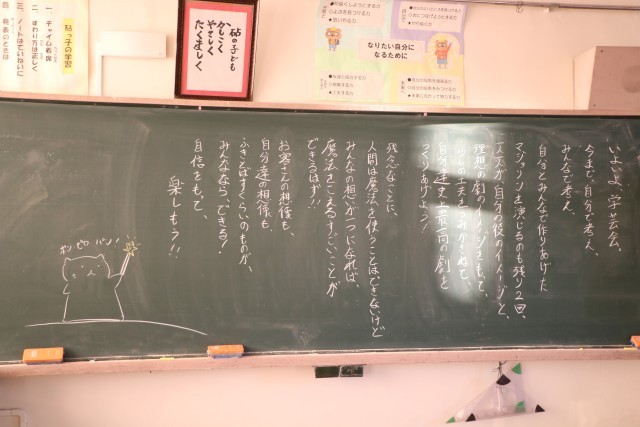 いよいよ、学芸会。
今まで、自分で考え、
みんなで考え、
自分とみんなで作りあげた
マジョリンを演じるのも残り2回。
一人一人が自分の役のイメージと、
理想の劇のイメージをもって、
自分達の上最高の劇を
つくりあげよう!
残念なことに、
人間は魔法を使うことはできないけど
みんなの想いが一つになれば、
魔法をこえるすごいことが
できるはず!!
お客さんの想像も、
自分達の想像も
ふきとばすくらいのものが、
みんなならできる!
自信をもって、
楽しもう!!
ポンピロパン!
砧の子ども
かしこく
やさしく
たくましく
なりたい自分に
なるために
砧っ子の学習
一、チャイム着席
二、すわり方は正しく
三、ノートはていねいに
四、発表のときは